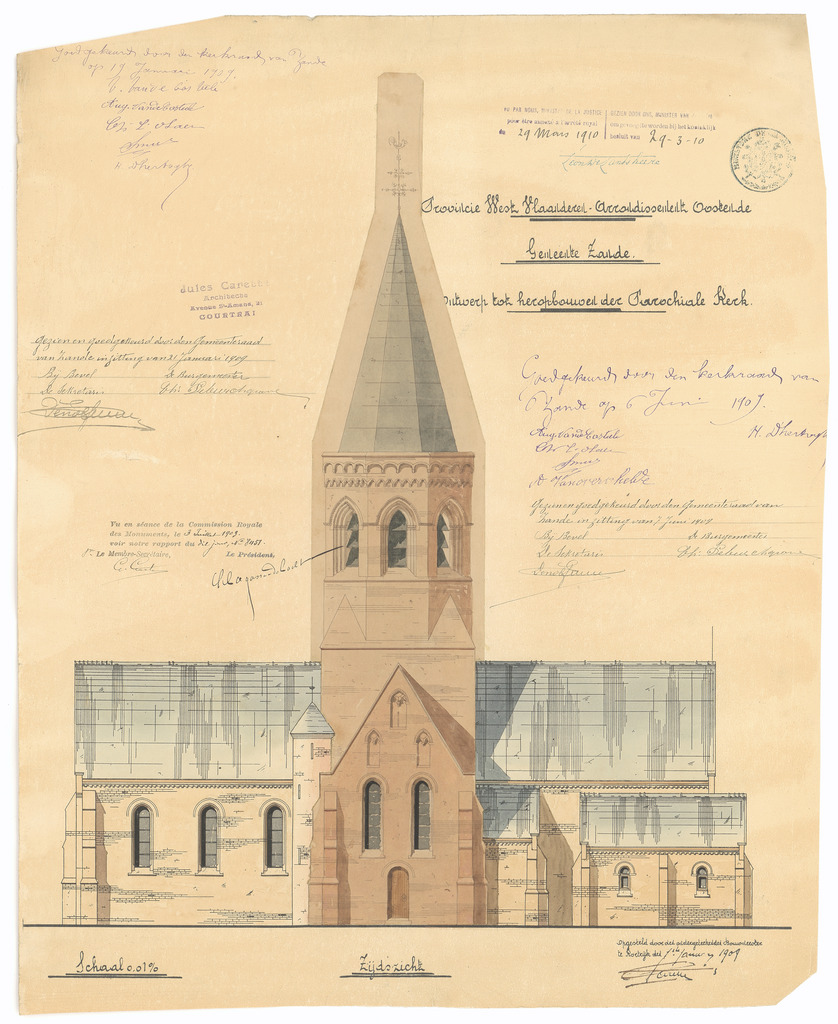 Goedgekeurd door den kerkraad van Zande
op 19 Januari 1909.
Aug. Vandecasteele
H. Dhertoghe
VU PAR NOUS, MINISTRE DE LA JUSTICE
pour être annexé à l'arrêté royal
du 29 Mars 1910
GEZIEN DOOR ONS, MINISTER VAN
om gevoegd te worden bij het koninklijk
besluit van 29-3-10
Provincie West Vlaanderen - Arrondissement Oostende
Gemeente Zande.
Ontwerp tot heropbouwen der Parochiale Kerk.
Jules Carette
Architecte
Avenue St-Amand, 21
COURTRAI
Gezien en goedgekeurd door den Gemeenteraad
van Zande in zitting van 21 Januari 1909
By Bevel De Burgemeester
De Sekretaris
Goedgekeurd door den kerkraad van
Zande op 6 Juni 1909.
Aug. Vandecasteele H. Dhertoghe
Gezien en goedgekeurd door den Gemeenteraad van
Zande in zitting van 7 Juni 1909
By Bevel De Burgemeester
De Sekretaris
Vu en séance de la Commission Royale
des Monuments, le 3 Juillet 1909.
voir notre rapport du dit jour, No
Le Membre-Secrétaire, Le Président,
Schaal 0.01%
Zijdszicht
Opgesteld door den ondergeteekenden Bouwmeester
te Kortrijk den 1909